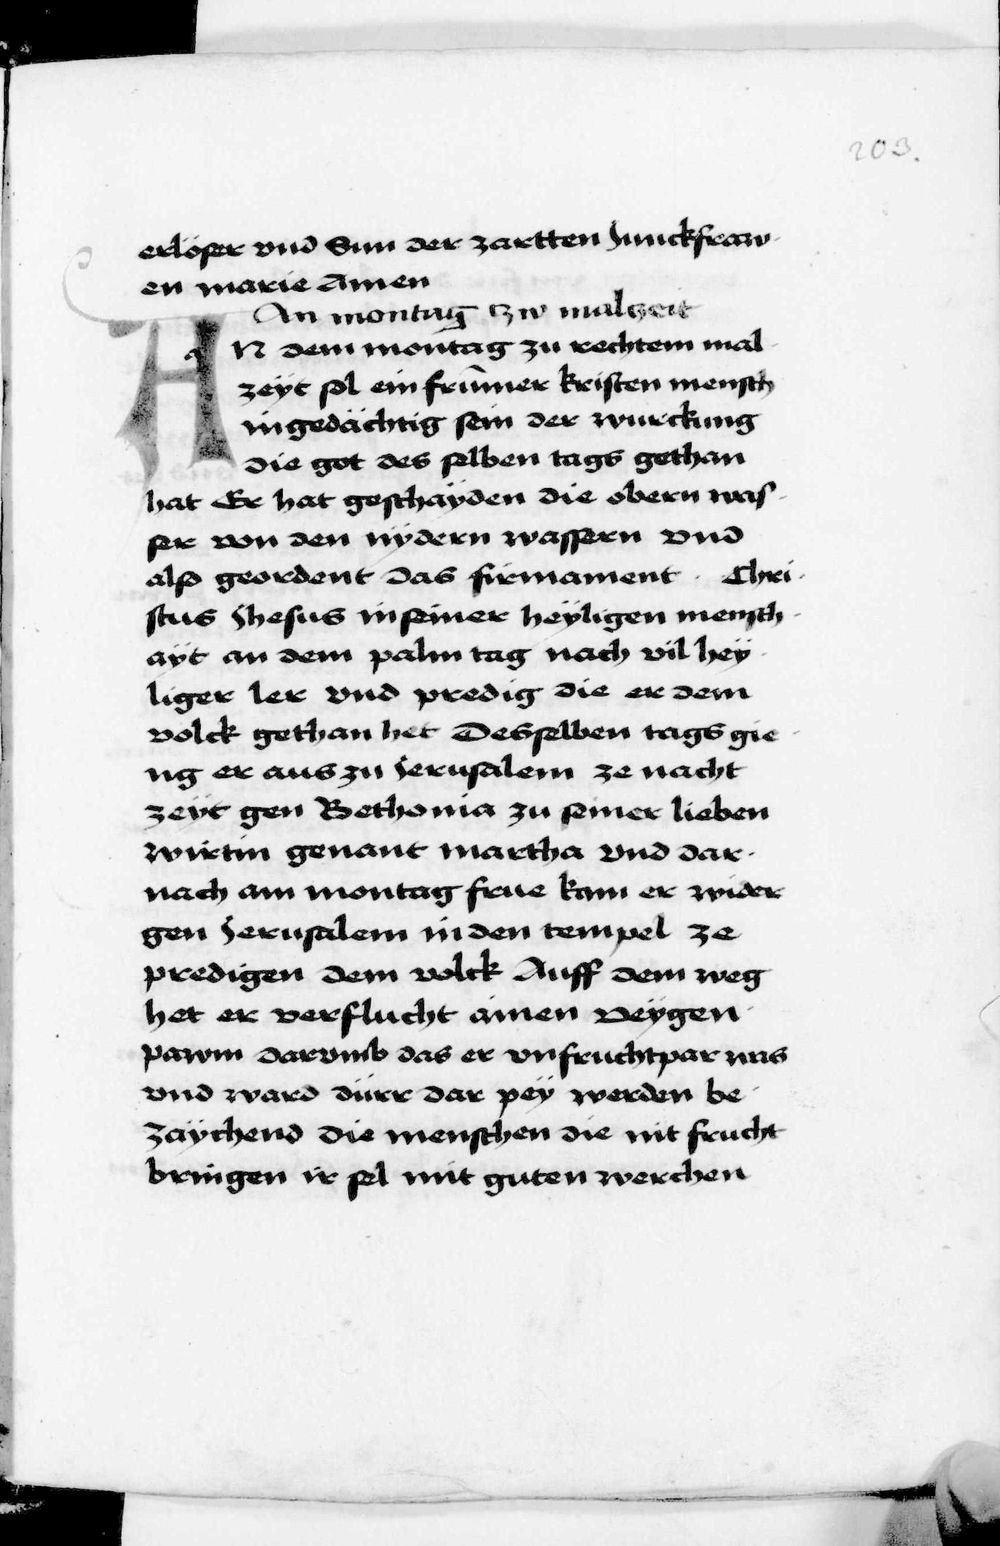 203.
erlöser vnd Sun der zartten Junckfraw-
en marie Amen
An montag zw malzeit
AN dem montag zu rechtem mal-
zeyt sol ein frūmer kristen mensch
ingedächtig sein der wurckung
die got des selben tags gethan
hat Er hat geschayden die obern was-
ser von den nydern wassern vnd
also geordent das firmament. Chri-
stus Jhesus in seiner heyligen mensch-
ayt an dem palm tag nach vil hey-
liger ler vnd predig die er dem
volck gethan het Desselben tags gie-
ng er aus zu Jerusalem ze nacht
zeyt gen Bethonia zu seiner lieben
wirtin genant martha vnd dar-
nach am montag frue kam er wider
gen Jerusalem in den tempel ze
predigen dem volck Auff dem weg
het er verflucht ainen veygen
pawm darvmb das er vnfruchtpar was
vnd ward dürr dar pey werden be-
zaychend die menschen die nit frucht
bringen ir sel mit guten werchen